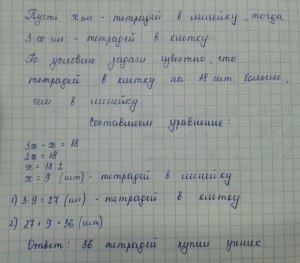 Пусть x шт - тетрадей в линейку, тогда
3x шт - тетрадей в клетку.
По условию задачи известно, что
тетрадей в клетку на 18 шт больше,
чем в линейку.
Составляем уравнение:
3x - x = 18
2x = 18
x = 18:2
x = 9 (шт) - тетрадей в линейку
1) 3·9 = 27 (шт) - тетрадей в клетку.
2) 27 + 9 = 36 (шт)
Ответ: 36 тетрадей купил ученик.